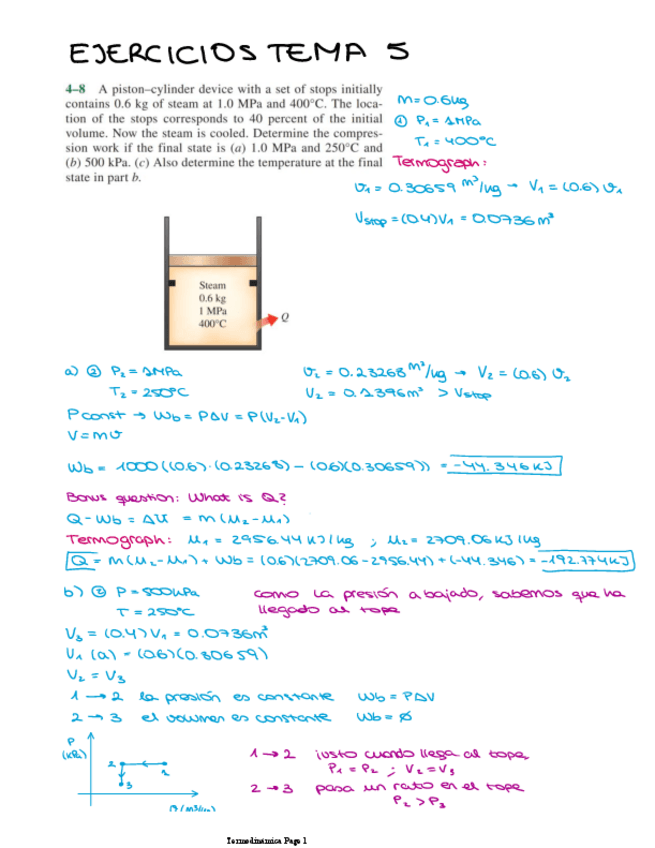 EJERCICIOS TEMA 5
4–8 A piston–cylinder device with a set of stops initially
contains 0.6 kg of steam at 1.0 MPa and 400°C. The loca-
tion of the stops corresponds to 40 percent of the initial
volume. Now the steam is cooled. Determine the compres-
sion work if the final state is (a) 1.0 MPa and 250°C and
(b) 500 kPa. (c) Also determine the temperature at the final
state in part b.
m=0.6kg
① P₁ = 1MPa
T₁ = 400°C
Termograph:
υ₁ = 0.30659 m³/kg → V₁ = (0.6) υ₁
Vstop = (0.4)V₁ = 0.0736m³
Steam
0.6 kg
1 MPa
400°C
Q
a) ② P₂ = 1MPa
T₂ = 250°C
υ₂ = 0.23268 m³/kg → V₂ = (0.6) υ₂
V₂ = 0.1396m³ > Vstop
P const → Wb = PΔV = P(V₂-V₁)
V=mυ
Wb = 1000((0.6)·(0.23268) – (0.6)(0.30659)) = -44.346KJ
Bonus question: What is Q?
Q - Wb = ΔU = m(u₂-u₁)
Termograph: u₁ = 2956.44 KJ/kg ; u₂ = 2709.06KJ/kg
Q = m(u₂-u₁) + Wb = (0.6)(2709.06-2956.44)+(-44.346) = -192.774KJ
b) ② P=500kPa
T = 250°C
como la presión a bajado, sabemos que ha
llegado al tope
V₃ = (0.4)V₁ = 0.0736m³
V₁ (a) = (0.6)(0.30659)
V₂ = V₃
1 → 2 la presión es constante Wb = PΔV
2 → 3 el volumen es constante Wb = ø
P
(kPa)
2
1
3
1 → 2 justo cuando llega al tope,
P₁ = P₂ ; V₂ = V₃
2 → 3 pasa un rato en el tope
P₂ > P₃
Termodinámica Page 1